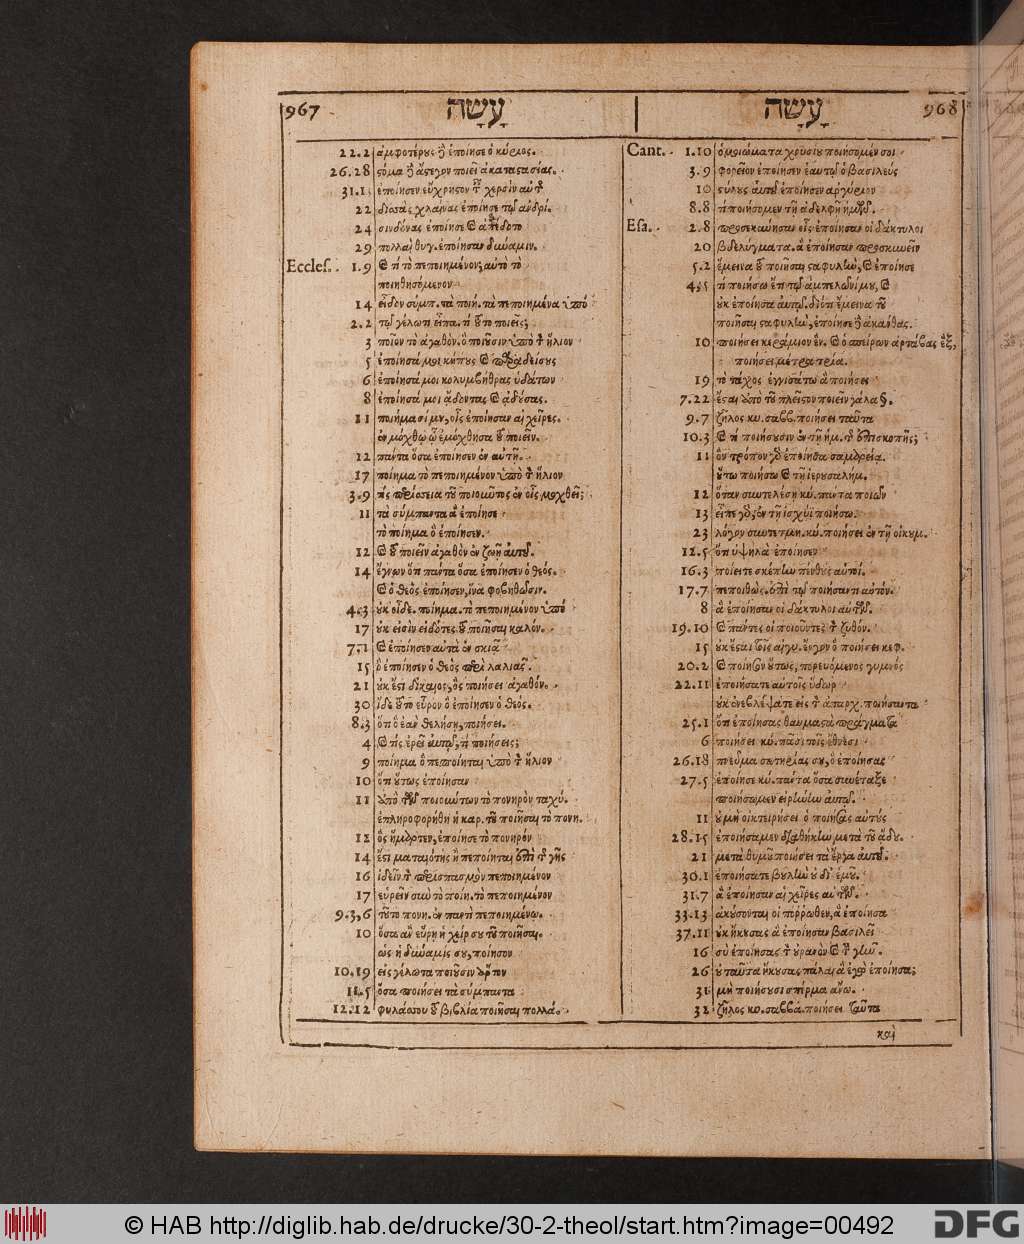 967 עָשָׂה
עָשָׂה 968
22.2 ἀμφοτέρους δὲ ἐποίησε ὁ κύριος.
26.28 στόμα δὲ ἄστεγον ποιεῖ ἀκαταστασίας.
31. ἐποίησεν εὔχρηστον ταῖς χερσὶν αὐτ
22 δισσὰς χλαίνας ἐποίησε τῷ ἀνδρί.
24 σινδόνας ἐποίησε καὶ ἀπέδοτο
29 πολλαὶ θυγ. ἐποίησαν δύναμιν.
Eccles. 1.9 καὶ τί τὸ πεποιημένον; αὐτὸ τὸ
ποιηθησόμενον
14 εἶδον σύμπ. τὰ ποιή. τὰ πεποιημένα ὑπό
2.2 τῷ γέλωτι εἶπα. τί τοῦτο ποιεῖς;
3 ποῖον τὸ ἀγαθόν. ὃ ποιοῦσιν ὑπὸ τὸν ἥλιον
5 ἐποίησά μοι κήπους καὶ παραδείσους
6 ἐποίησά μοι κολυμβήθρας ὑδάτων
8 ἐποίησά μοι ᾄδοντας καὶ ᾀδούσας.
11 ποιήμασί μου, οἷς ἐποίησαν αἱ χεῖρες.
ἐν μόχθῳ ᾧ ἐμόχθησα τοῦ ποιεῖν.
12 πάντα ὅσα ἐποίησεν ἐν αὐτῇ.
17 ποίημα τὸ πεποιημένον ὑπὸ τὸν ἥλιον
3.9 τίς περίσσεια τοῦ ποιοῦντος ἐν οἷς μοχθεῖ;
11 τὰ σύμπαντα ἃ ἐποίησε
τὸ ποίημα ὃ ἐποίησεν.
12 καὶ τοῦ ποιεῖν ἀγαθὸν ἐν ζωῇ αὐτοῦ.
14 ἔγνων ὅτι πάντα ὅσα ἐποίησεν ὁ θεός.
καὶ ὁ θεὸς ἐποίησεν, ἵνα φοβηθῶσιν.
4.3 οὐκ οἶδε. ποίημα. τὸ πεποιημένον ὑπό
17 οὐκ εἰσὶν εἰδότες τοῦ ποιῆσαι καλόν.
7.1 καὶ ἐποίησεν αὐτὰ ἐν σκιᾷ
15 ἐποίησεν ὁ θεὸς περὶ λαλιᾶς.
21 οὐκ ἔστι δίκαιος, ὃς ποιήσει ἀγαθόν.
30 ἴδε τοῦτο εὗρον ὃ ἐποίησεν ὁ θεός.
8.3 ὅτι ὃ ἐὰν θελήσῃ, ποιήσει.
4 καὶ τίς ἐρεῖ αὐτῷ, τί ποιήσεις;
9 ποίημα ὃ πεποίηται ὑπὸ τὸν ἥλιον
10 ὅτι οὕτως ἐποίησαν
11 ἀπὸ τῶν ποιούντων τὸ πονηρὸν ταχύ.
ἐπληροφορήθη ἡ καρ. τοῦ ποιῆσαι τὸ πονη.
12 ὃς ἥμαρτεν, ἐποίησε τὸ πονηρόν
14 ἔστι ματαιότης ἣ πεποίηται ἐπὶ τῆς γῆς
16 ἰδεῖν τὸν περισπασμὸν πεποιημένον
17 εὑρεῖν σὺν τὸ ποίη. τὸ πεποιημένον
9.3,6 τοῦτο πονη. ἐν παντὶ πεποιημένῳ.
10 ὅσα ἂν εὕρῃ ἡ χείρ σου τοῦ ποιῆσαι.
ὡς ἡ δύναμίς σου, ποίησον
10.19 εἰς γέλωτα ποιοῦσιν ἄρτον
11.5 ὅσα ποιήσει τὰ σύμπαντα
12.12 φυλάσσου τοῦ βιβλία ποιῆσαι πολλά.
Cant. 1.10 ὁμοιώματα χρυσίου ποιήσομέν σοι
3.9 φορεῖον ἐποίησεν ἑαυτῷ ὁ βασιλεύς
10 στύλους αὐτοῦ ἐποίησεν ἀργύριον
8.8 τί ποιήσομεν τῇ ἀδελφῇ ἡμῶν.
Esa. 2.8 προσεκύνησαν οἷς ἐποίησαν οἱ δάκτυλοι
20 βδελύγματα. ἃ ἐποίησαν προσκυνεῖν
5.2 ἔμεινα τοῦ ποιῆσαι σταφυλὴν, καὶ ἐποίησε
4,5 τί ποιήσω ἔτι τῷ ἀμπελῶνί μου, καὶ
οὐκ ἐποίησα αὐτῷ. διότι ἔμεινα τοῦ
ποιῆσαι σταφυλὴν, ἐποίησε δὲ ἀκάνθας.
10 ποιήσει κεράμιον ἕν. καὶ ὁ σπείρων ἀρτάβας ἓξ,
ποιήσει μέτρα τρία.
19 τὸ τάχος ἐγγισάτω ἃ ποιήσει
7.22 ἔσται ἀπὸ τοῦ πλεῖστον ποιεῖν γάλα §.
9.7 ζῆλος κυ. σαββ. ποιήσει ταῦτα
10.3 καὶ τί ποιήσουσιν ἐν τῇ ἡμ. τῆς ἐπισκοπῆς;
11 ὃν τρόπον γὰρ ἐποίησα σαμαρείᾳ.
οὕτω ποιήσω καὶ τῇ ἱερουσαλήμ.
12 ὅταν συντελέσῃ κύ. πάντα ποιῶν
13 εἶπε γὰρ, ἐν τῇ ἰσχύϊ ποιήσω.
23 λόγον συντετμη. κύ. ποιήσει ἐν τῇ οἰκουμ.
12.5 ὅτι ὑψηλὰ ἐποίησεν
16.3 ποιεῖτε σκέπην πένθους αὐτοί.
17.7 πεποιθὼς. ἐπὶ τῷ ποιήσαντι αὐτόν.
8 ἃ ἐποίησαν οἱ δάκτυλοι αὐτῶν.
19.10 καὶ πάντες οἱ ποιοῦντες τὸν ζῦθον.
15 οὐκ ἔσται τοῖς αἰγυ. ἔργον ὃ ποιήσει κεφ.
20.2 καὶ ποίησον οὕτως, πορευόμενος γυμνός
22.11 ἐποιήσατε αὑτοῖς ὕδωρ
οὐκ ἐνεβλέψατε εἰς τὸν ἀπαρχ. ποιήσαντα
25.1 ὅτι ἐποίησας θαυμαστὰ πράγματα
6 ποιήσει κύ. πᾶσι τοῖς ἔθνεσι
26.18 πνεῦμα σωτηρίας σου, ὃ ἐποίησας
27.5 ἐποίησε κύ. πάντα ὅσα συνέταξε
ποιήσωμεν εἰρήνην αὐτῷ.
11 οὐ μὴ οἰκτειρήσει ὁ ποιήσας αὐτούς
28.15 ἐποιήσαμεν διαθήκην μετὰ τοῦ ᾅδου.
21 μετὰ θυμοῦ ποιήσει τὰ ἔργα αὐτοῦ.
30.1 ἐποιήσατε βουλὴν οὐ δι' ἐμοῦ.
31.7 ἃ ἐποίησαν αἱ χεῖρες αὐτῶν.
33.13 ἀκούσονται οἱ πόρρωθεν, ἃ ἐποίησα
37.11 οὐκ ἤκουσας ἃ ἐποίησαν βασιλεῖς
16 σὺ ἐποίησας τὸν οὐρανὸν καὶ τὴν γῆν.
26 οὐ ταῦτα ἤκουσας πάλαι ἃ ἐγὼ ἐποίησα;
31 μὴ ποιήσουσι σπέρμα ἄνω.
32 ζῆλος κυ. σαββά. ποιήσει ταῦτα
καὶ
© HAB http://diglib.hab.de/drucke/30-2-theol/start.htm?image=00492
DFG